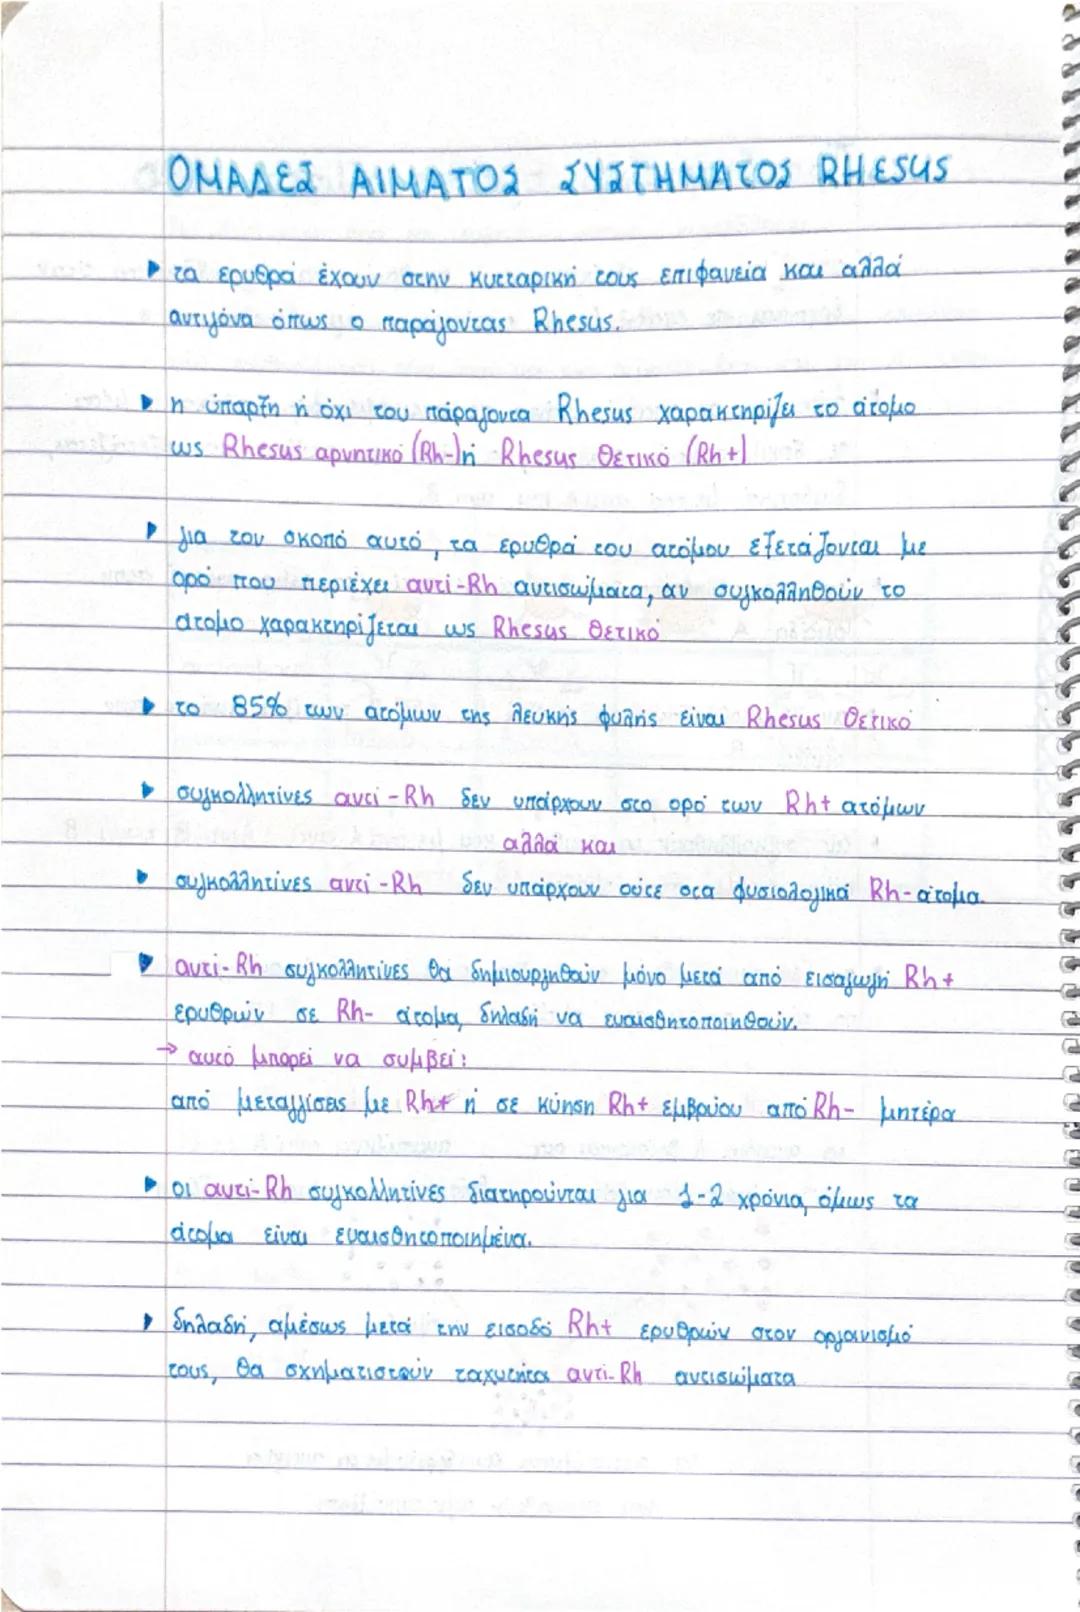 ΟΜΑΔΕΣ ΑΙΜΑΤΟΣ ΣΥΣΤΗΜΑΤΟΣ RHESUS
▸ τα ερυθρά έχουν στην κυτταρική τους επιφανεία και αλλά
αντιγόνα όπως ο παράγοντας Rhesus.
▸ η ύπαρξη ή όχι του πάραγοντα Rhesus χαρακτηρίζει το άτομο
ως Rhesus αρνητικό (Rh-) ή Rhesus θετικό (Rh+)
▸ για τον σκοπό αυτό, τα ερυθρά του ατόμου εξετάζονται με
ορό που περιέχει αντι-Rh αντισώματα, αν συγκολληθούν το
άτομο χαρακτηρίζεται ως Rhesus θετικό
▸ το 85% των ατόμων της λευκής φυλής είναι Rhesus θετικό
▸ συγκολλητίνες αντι-Rh δεν υπάρχουν στο ορό των Rh+ ατόμων
αλλά και
▸ συγκολλητίνες αντι-Rh δεν υπάρχουν ούτε στα φυσιολογικά Rh- άτομα.
▸ αντι-Rh συγκολλητίνες θα δημιουργηθούν μόνο μετά από εισαγωγή Rh+
ερυθρών σε Rh- άτομα, δηλαδή να ευαισθητοποιηθούν.
→ αυτό μπορεί να συμβεί:
από μεταγγίσεις με Rh+ ή σε κύηση Rh+ εμβρύου από Rh- μητέρα
▸ οι αντι-Rh συγκολλητίνες διατηρούνται για 1-2 χρόνια, όμως τα
άτομα είναι ευαισθητοποιημένα.
▸ δηλαδή, αμέσως μετά την εισοδό Rh+ ερυθρών στον οργανισμό
τους, θα σχηματιστούν ταχύτητα αντι-Rh αντισώματα